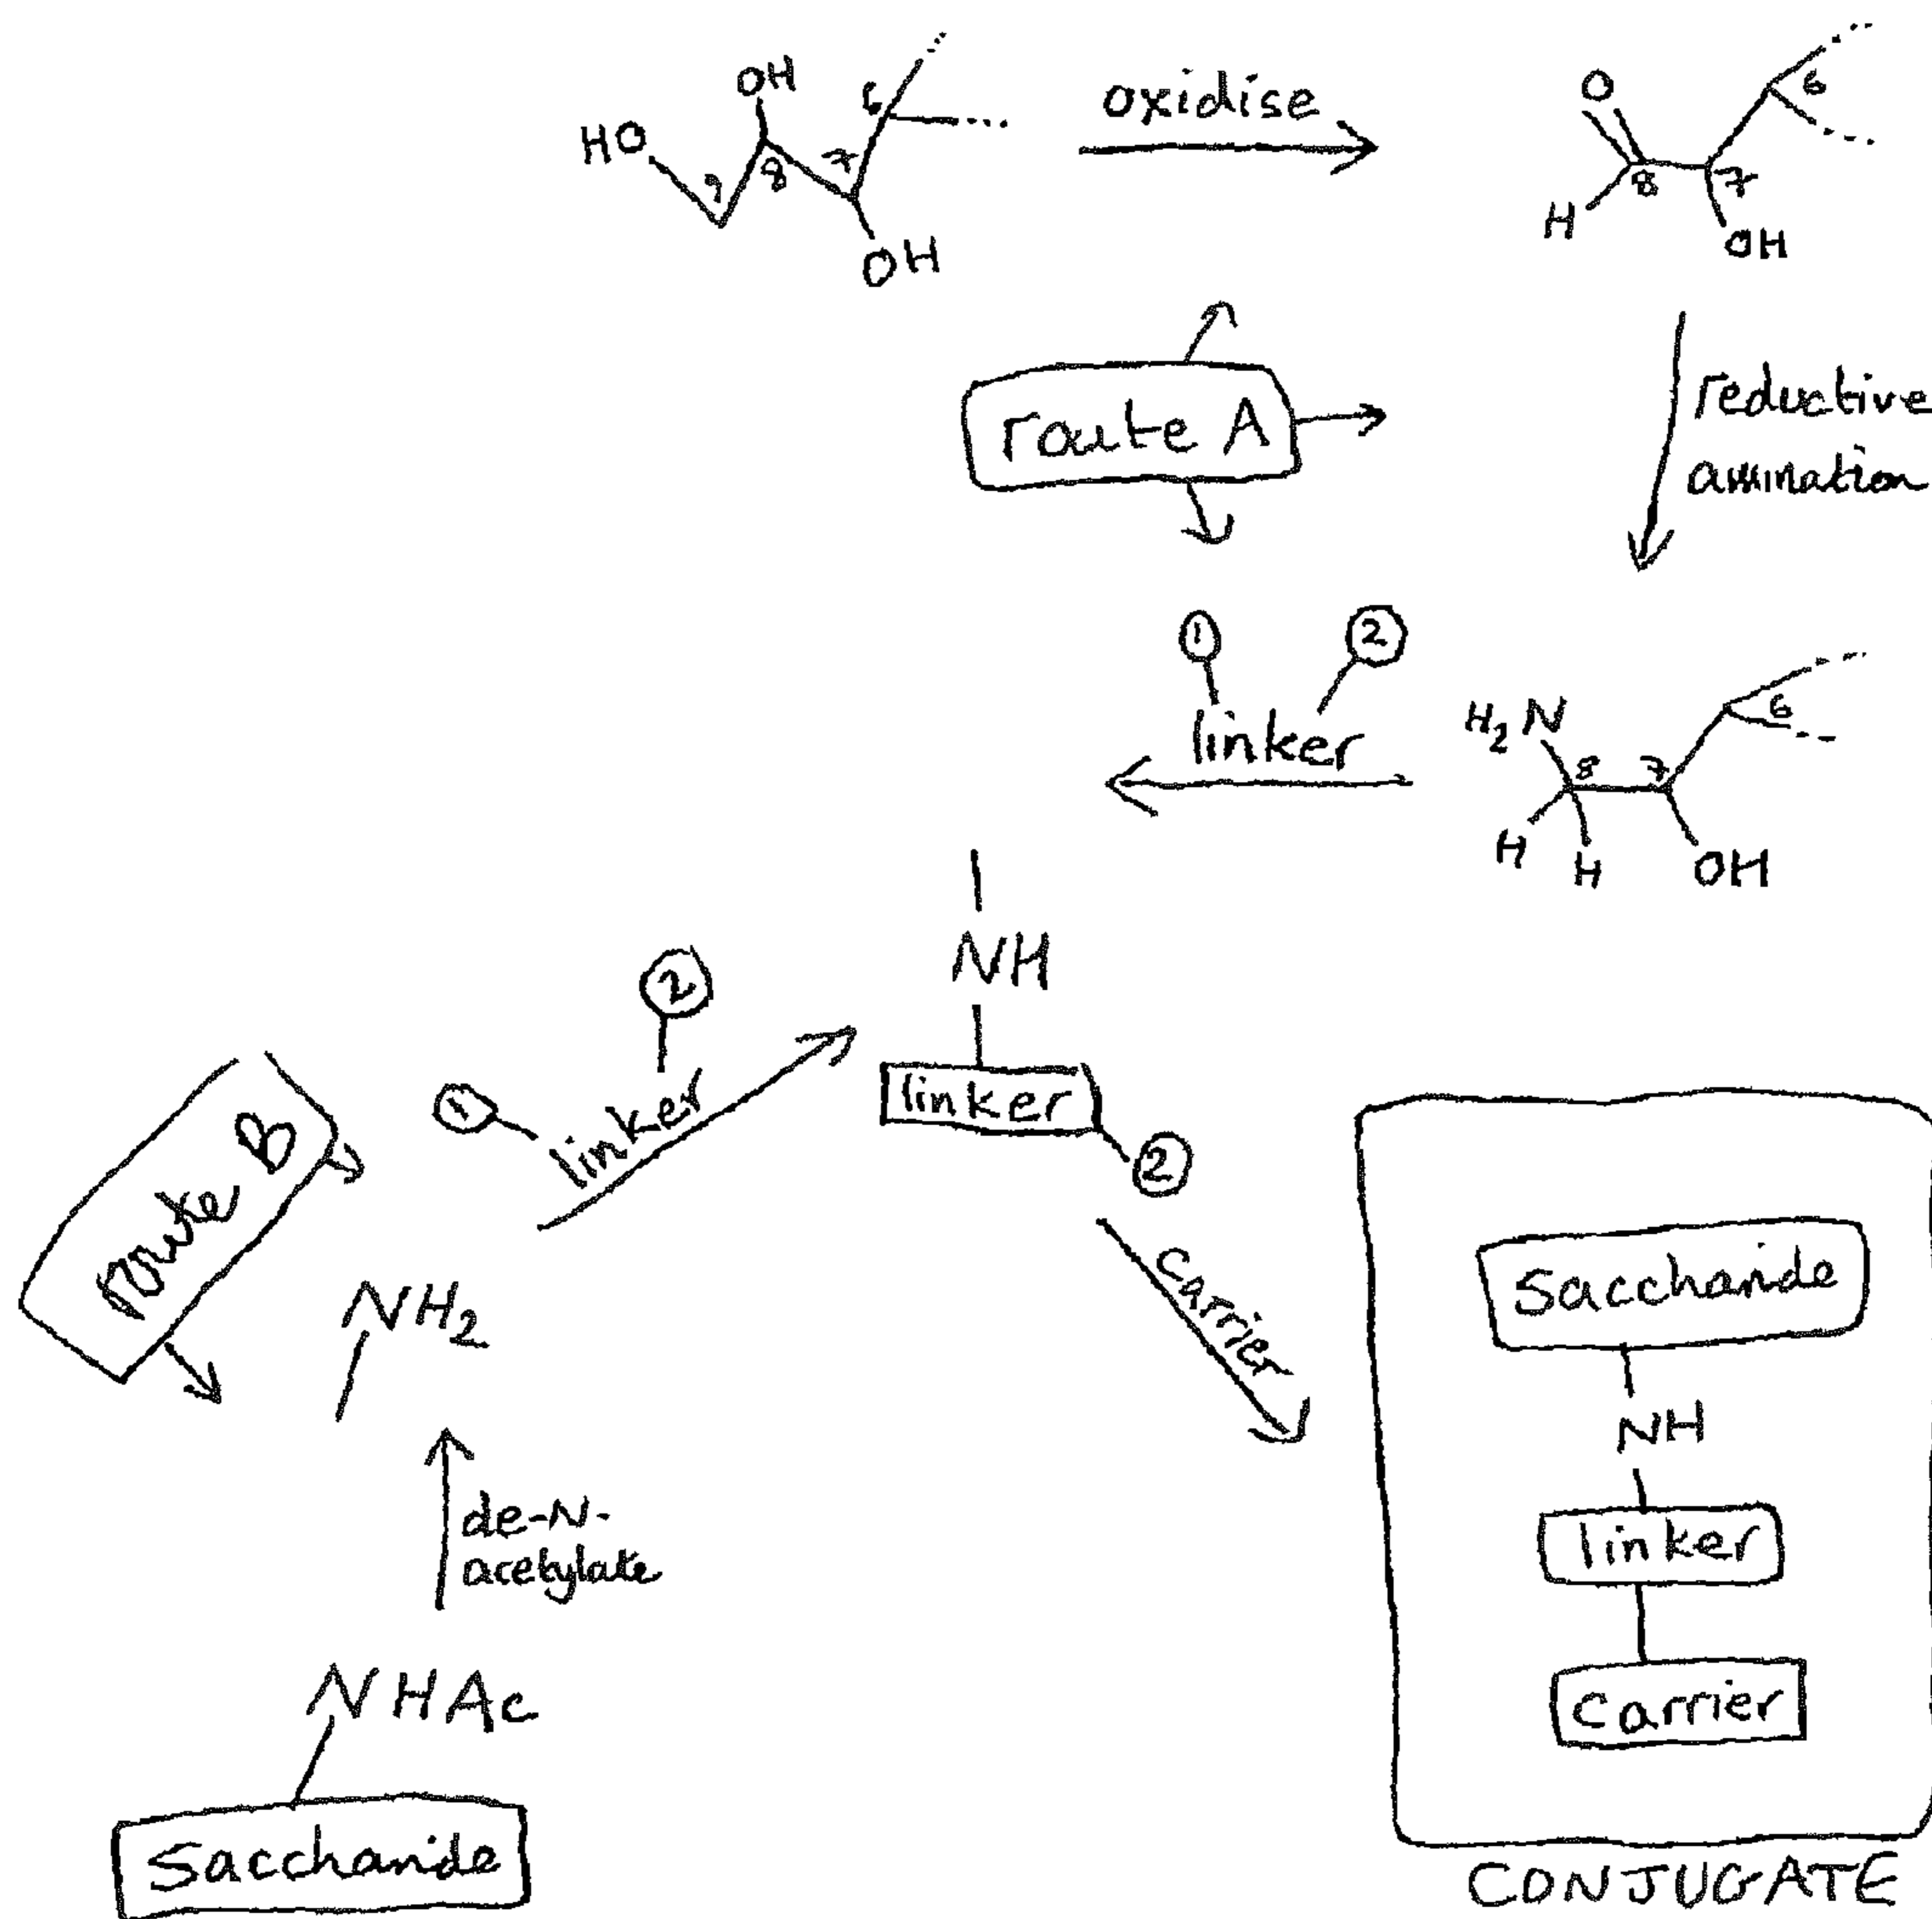 OH
HO
9
8
7
6
OH
oxidise
O
H
8
7
6
OH
route A
reductive
amination
1
2
linker
H2N
8
7
6
H
H
OH
NH
linker
2
Route B
1
2
linker
NH2
de-N-
acetylate
NHAc
Saccharide
carrier
Saccharide
NH
linker
carrier
CONJUGATE